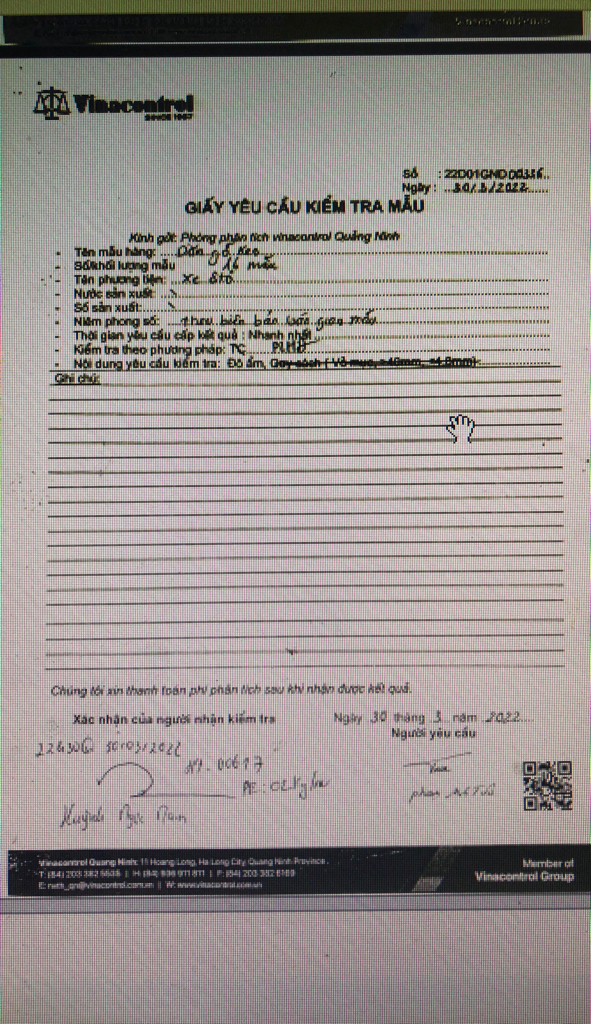 Vinacontrol
SINCE 1957
Số : 22D01GND00336..
Ngày : ...30/3/2022......
GIẤY YÊU CẦU KIỂM TRA MẪU
Kính gửi: Phòng phân tích vinacontrol Quảng Ninh
- Tên mẫu hàng: ....Dăm gỗ keo
- Số/khối lượng mẫu 16 mẫu
- Tên phương tiện: ...Xe ôtô
- Nước sản xuất: \
- Số sản xuất: \
- Niêm phong số: ...theo biên bản bàn giao mẫu
- Thời gian yêu cầu cấp kết quả : Nhanh nhất
- Kiểm tra theo phương pháp: TC
- Nội dung yêu cầu kiểm tra: Độ ẩm,
Ghi chú:
Chúng tôi xin thanh toán phí phân tích sau khi nhận được kết quả.
Xác nhận của người nhận kiểm tra
Ngày 30 tháng 3 năm 2022....
Người yêu cầu
30/03/2022
00617
Huỳnh Ngọc Nam
Vinacontrol Quang Ninh: 11 Hoang Long, Ha Long City, Quang Ninh Province .
W: www.vinacontrol.com.vn
Member of
Vinacontrol Group